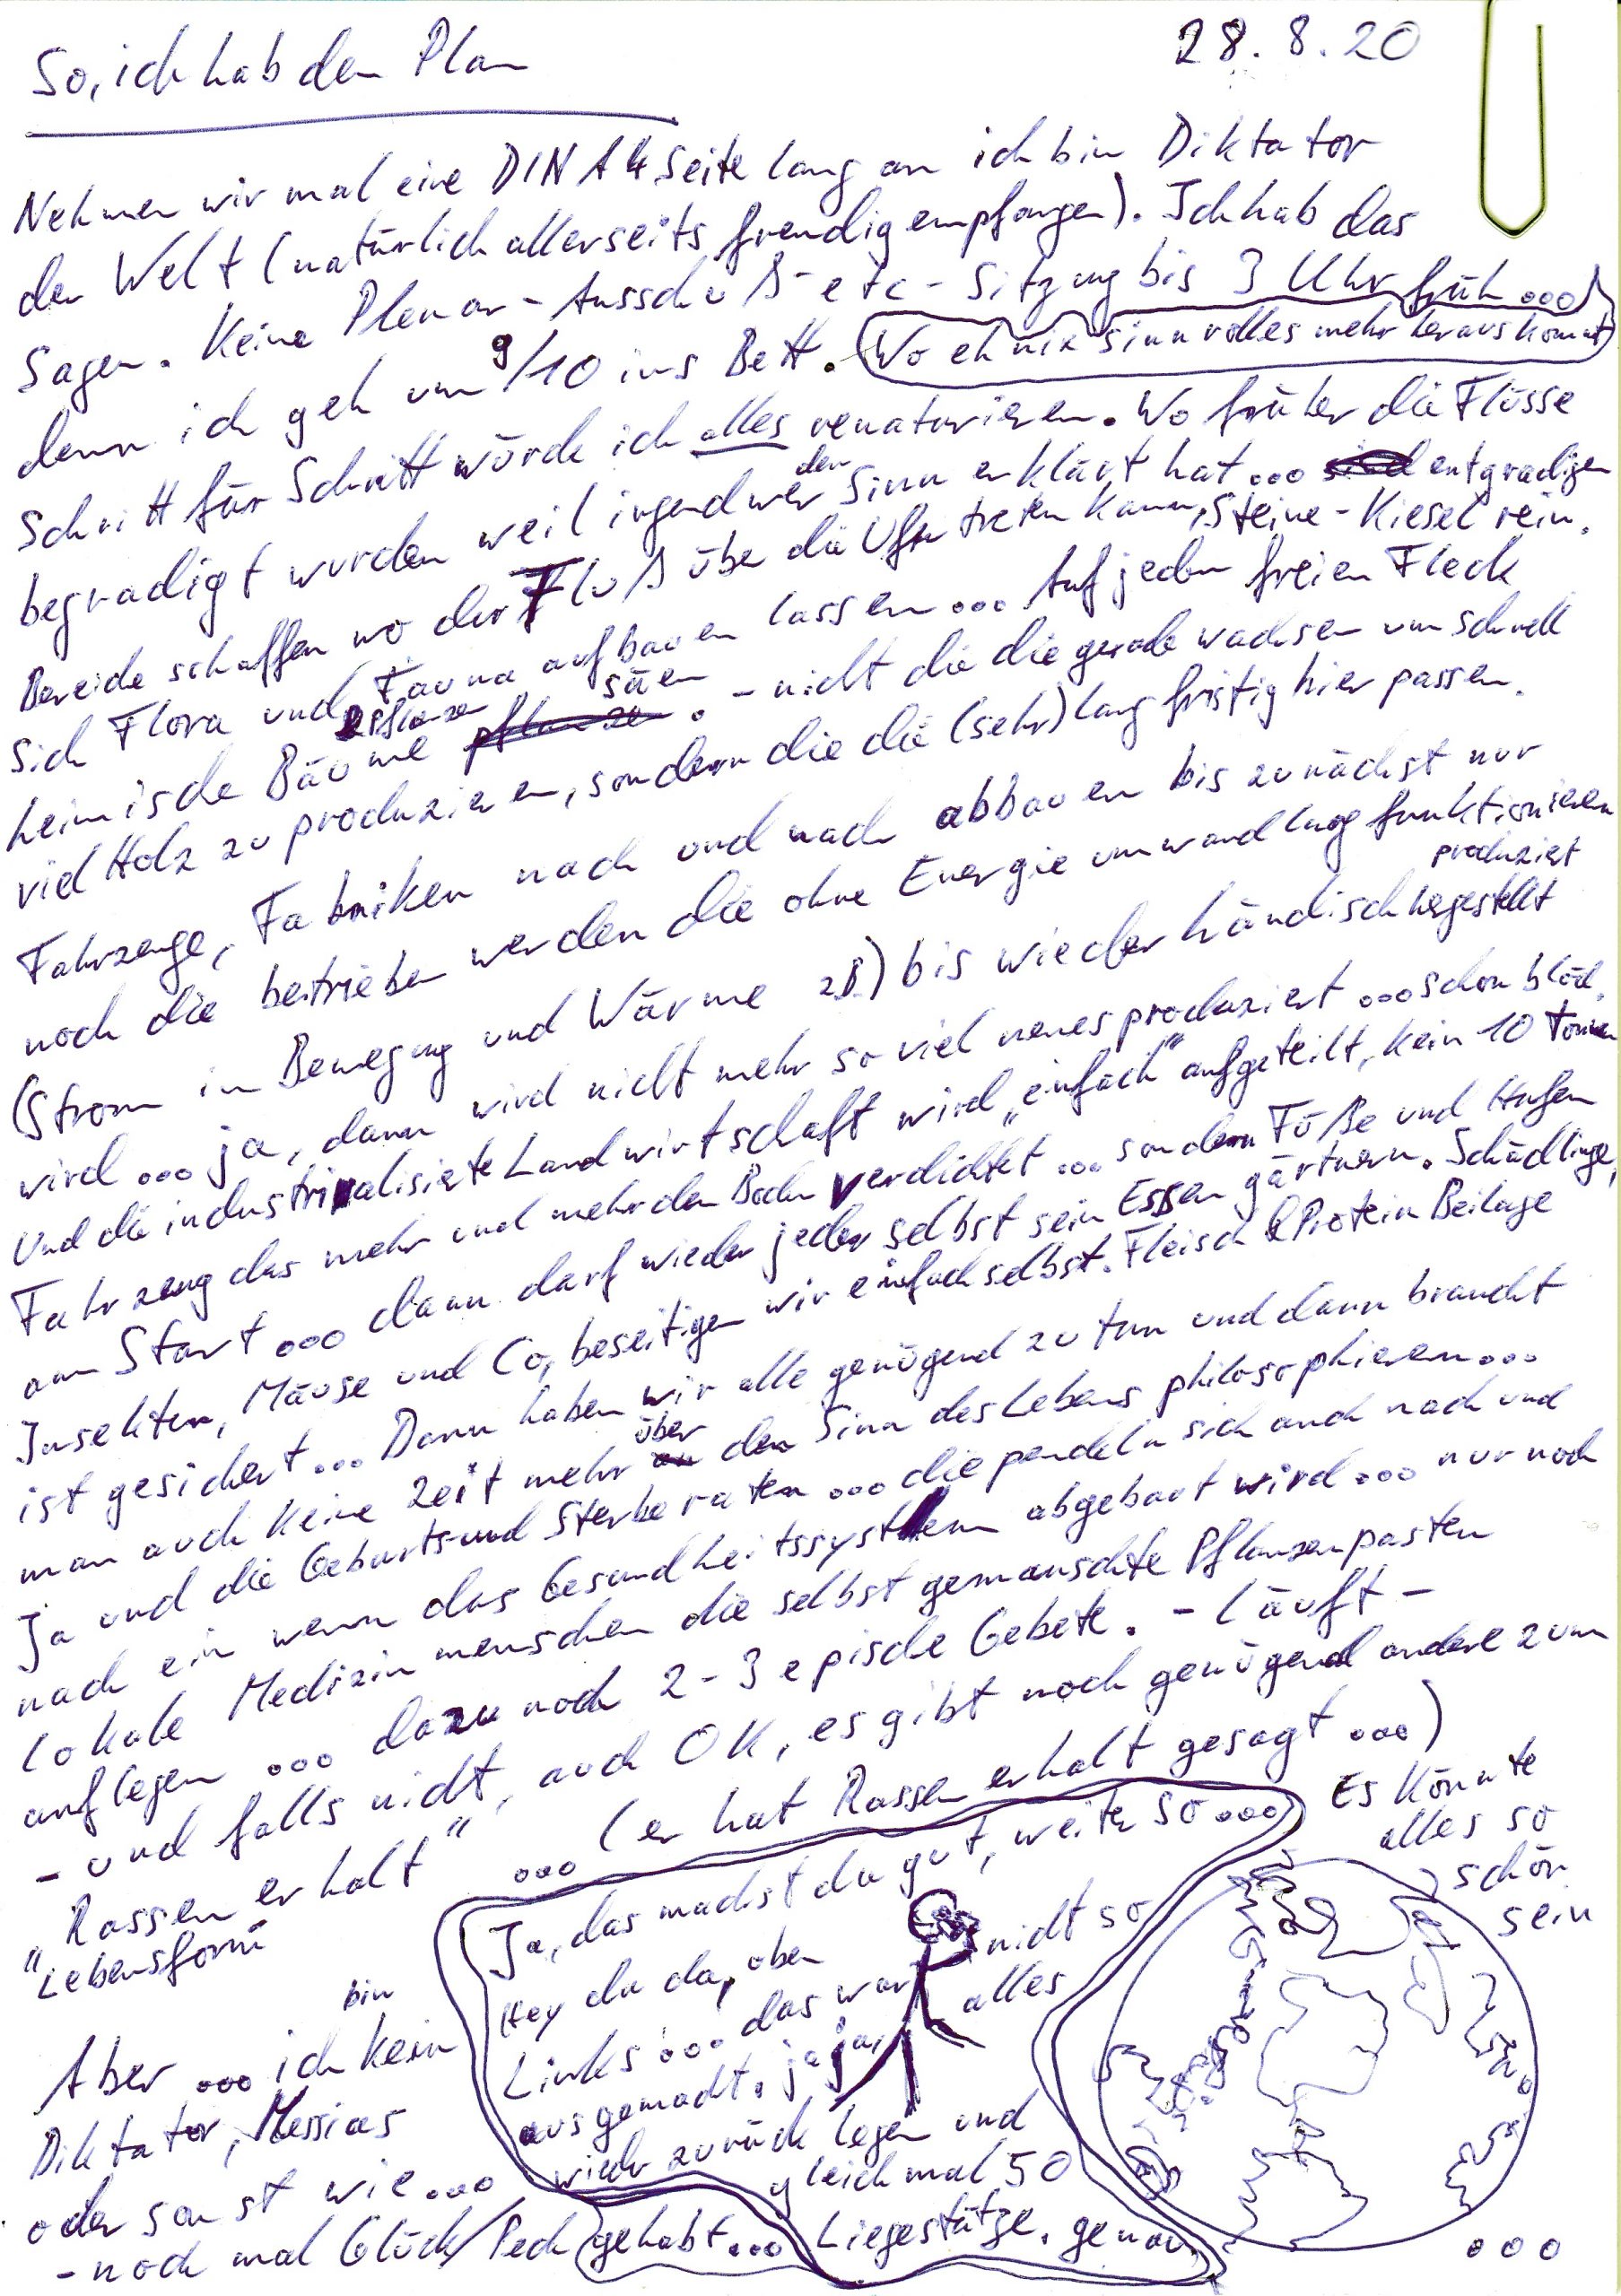 So, ich hab den Plan
28.8.20
Nehmen wir mal eine DIN A4 Seite lang an ich bin Diktator
der Welt (natürlich allerseits freudig empfangen). Ich hab das
Sagen. Keine Plenar-Ausschuß-etc-Sitzung bis 3 Uhr früh...
denn ich geh um 9/10 ins Bett. Wo eh nix sinnvolles mehr heraus kommt
Schritt für Schritt würde ich alles renaturieren. Wo früher die Flüsse
begradigt wurden weil irgendwer den Sinn erklärt hat... entgradigen
Bereiche schaffen wo der Fluß über die Ufer treten kann, Steine-Kiesel rein.
Sich Flora und Fauna aufbauen lassen... Auf jeden freien Fleck
heimische Bäume pflanzen säen. - nicht die die gerade wachsen um schnell
viel Holz zu produzieren, sondern die die (sehr) langfristig hier passen.
Fahrzeuge, Fabriken nach und nach abbauen bis zunächst nur
noch die betrieben werden die ohne Energieumwandlung funktionieren
(Strom in Bewegung und Wärme zB) bis wieder händisch hergestellt produziert
wird... ja, dann wird nicht mehr so viel neues produziert... schon blöd.
Und die industrialisierte Landwirtschaft wird "einfach" aufgeteilt, kein 10 Tonnen
Fahrzeug das mehr und mehr den Boden verdichtet... sondern Füße und Hufen
am Start... dann darf wieder jeder selbst sein Essen gärtnern. Schädlinge,
Insekten, Mäuse und Co, beseitigen wir einfach selbst. Fleisch & Protein Beilage
ist gesichert... Dann haben wir alle genügend zu tun und dann braucht
man auch keine Zeit mehr über den Sinn des Lebens philosophieren...
Ja und die Geburts-und Sterberaten... die pendeln sich auch nach und
nach ein wenn das Gesundheitssystem abgebaut wird... nur noch
lokale Medizinmenschen die selbst gemanschte Pflanzenpasten
auflegen... dazu noch 2-3 epische Gebete. - Läuft -
- und falls nicht, auch OK, es gibt noch genügend andere zum
"Rassenerhalt" ... (er hat Rassenerhalt gesagt...)
"Lebensform
Es könnte
alles so
schön
sein
Ja, das machst du gut, weiter so...
Hey du da, oben nicht so
Links... das war alles
ausgemacht. ja ja,
wieder zurück legen und
gleich mal 50
Liegestütze. genau.
Aber... ich bin kein
Diktator, Messias
oder sonst wie...
- noch mal Glück/Pech gehabt...
...